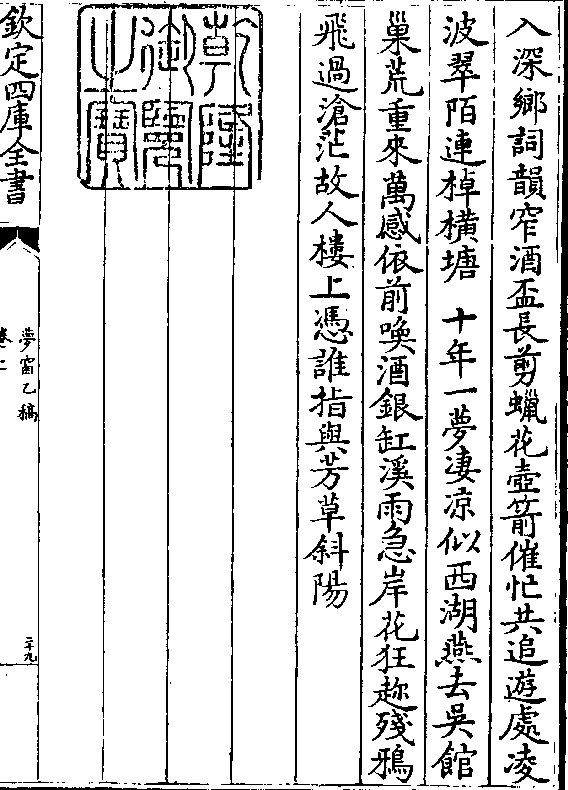 入深鄉詞韻窄酒盃長剪蠟花壺箭催忙共追遊處凌
波翠陌連棹橫塘 十年一夢淒凉似西湖燕去吳館
巢荒重來萬感依前喚酒銀缸溪雨急岸花狂趂殘鴉
飛過滄茫故人樓上憑誰指與芳草斜陽
乾隆御覽之寶
欽定四庫全書
夢窗乙稿
卷二
二十九